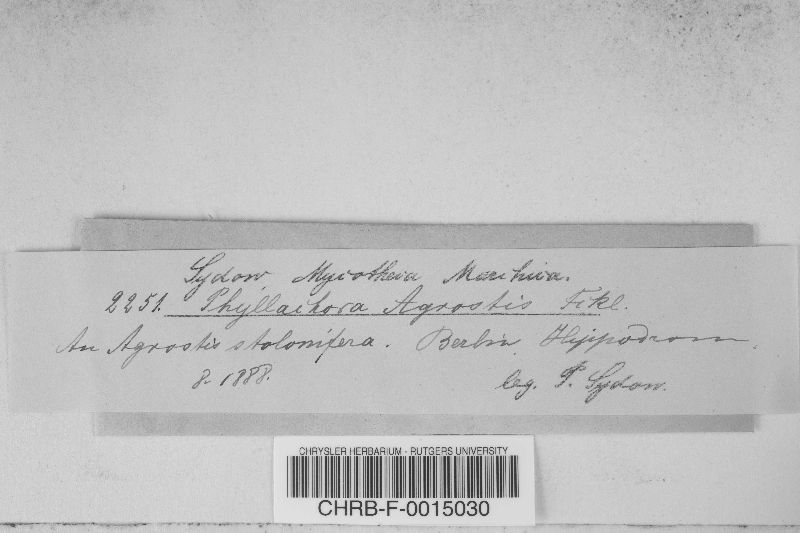 Sydow Mycotheca Marchica.
2251. Phyllachora Agrostis Fckl.
An Agrostis stolonifera. Berlin, Hippodrom.
8. 1888. leg. P. Sydow.
CHRYSLER HERBARIUM - RUTGERS UNIVERSITY
CHRB-F-0015030